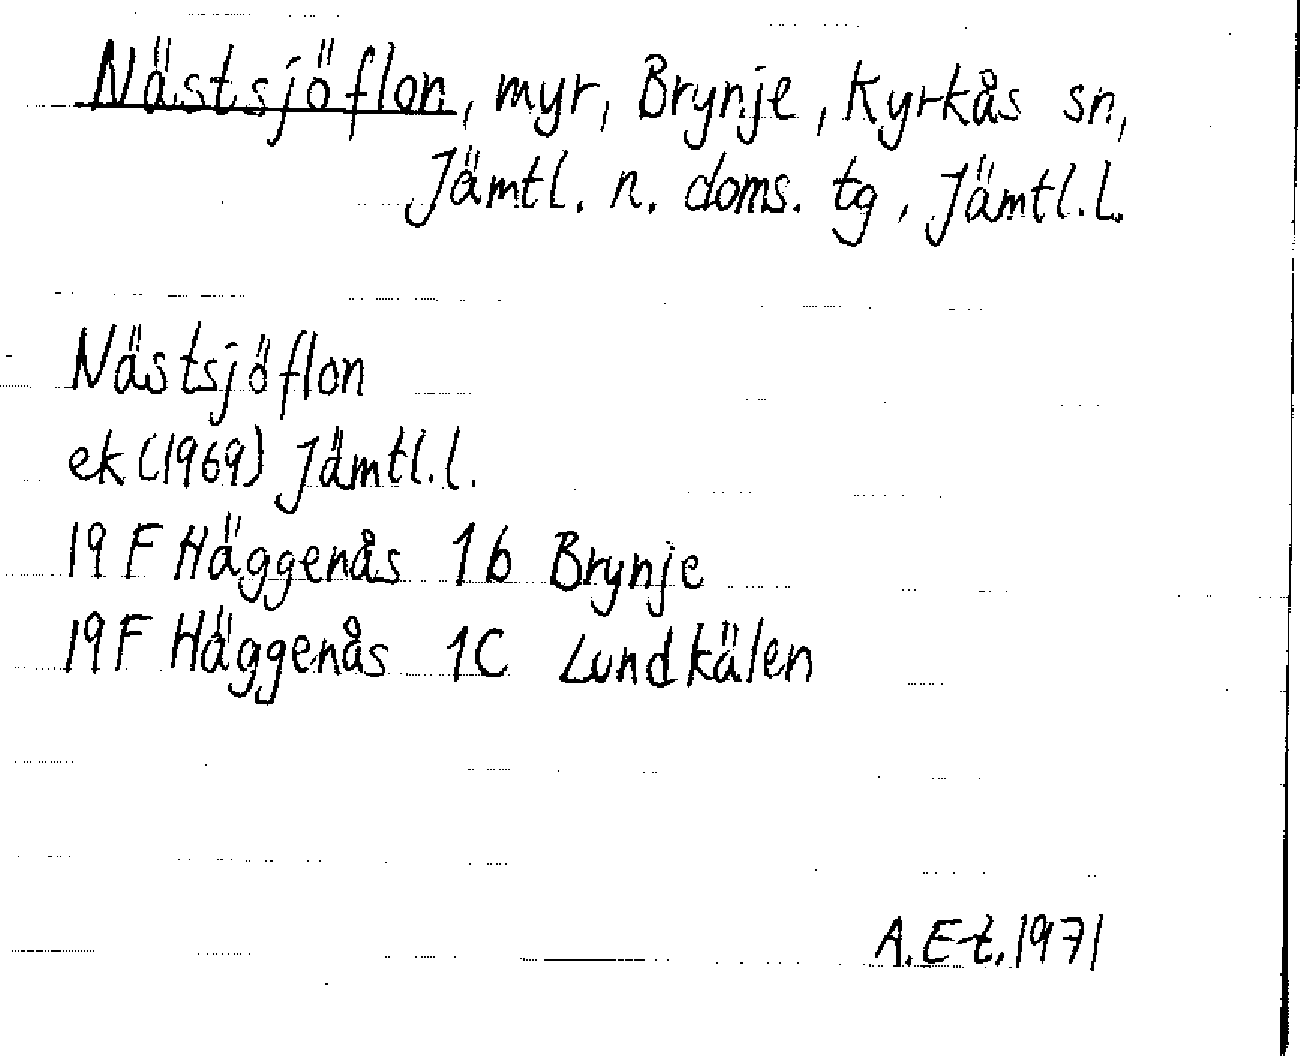 Nästsjöflon, myr, Brynje, Kyrkås sn,
Jämtl. n. doms. tg, Jämtl.l.
Nästsjöflon
ek (1969) Jämtl.l.
19 F Häggenås 1b Brynje
19 F Häggenås 1C Lundkälen
A.E-t. 1971